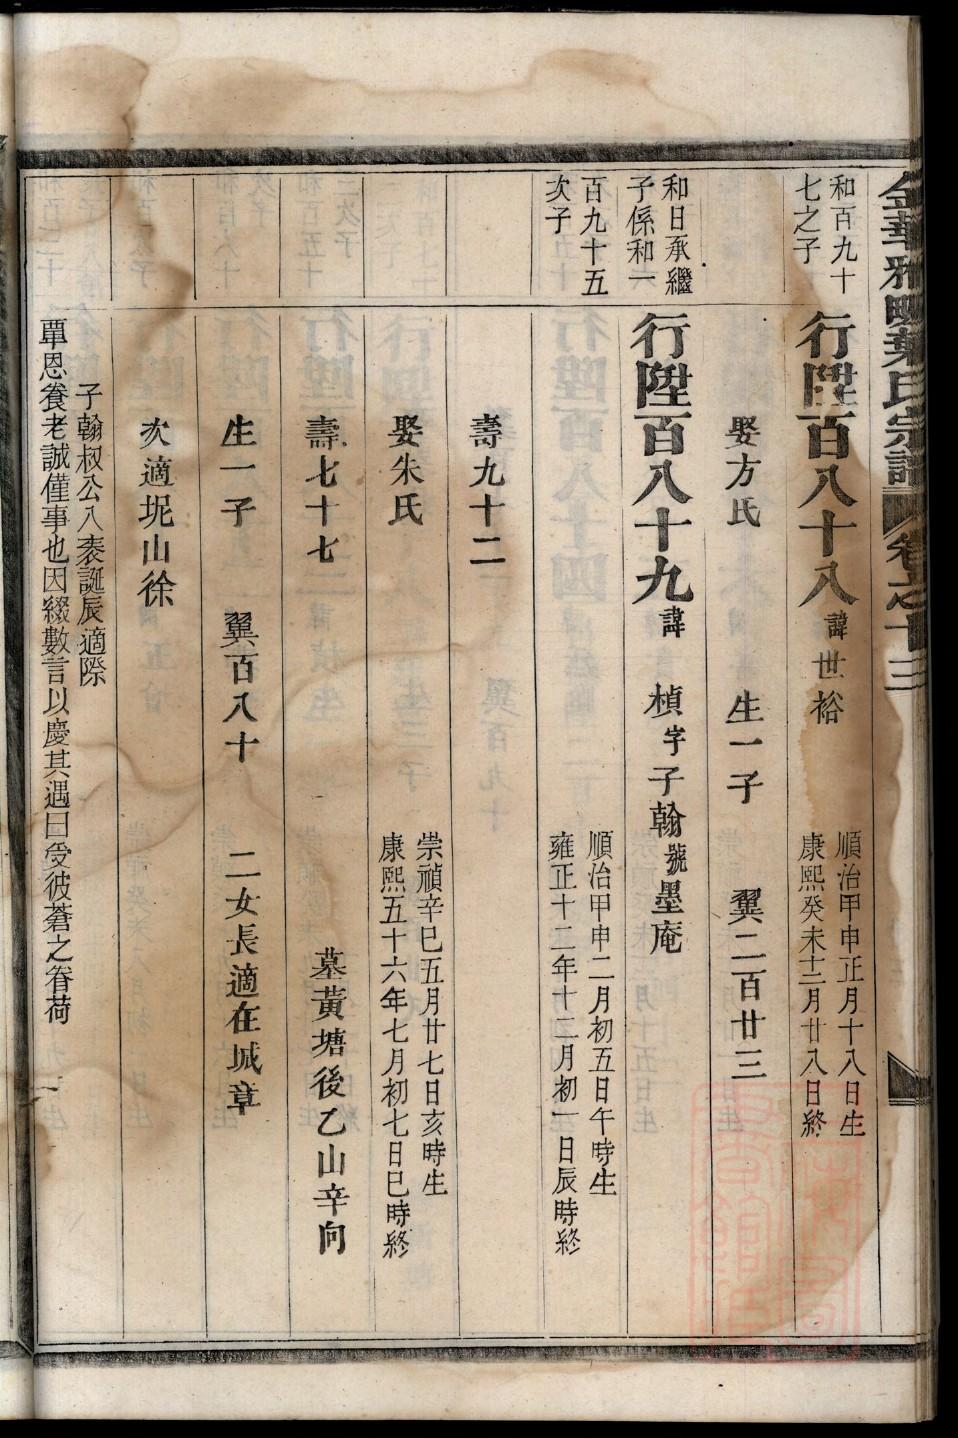 金華雅畈葉氏宗譜 卷之十三
和百九十
七之子
行陞百八十八 諱世裕
順治甲申正月十八日生
康熙癸未十二月廿八日終
娶方氏 生一子 翼二百廿三
和日承繼
子係和一
百九十五
次子
行陞百八十九 諱楨 字子翰 號墨庵
順治甲申二月初五日午時生
雍正十二年十二月初一日辰時終
壽九十二
娶朱氏
崇禎辛巳五月廿七日亥時生
康熙五十六年七月初七日巳時終
壽七十七 墓黃塘後乙山辛向
生一子 翼百八十 二女長適在城章
次適坭山徐
子翰叔公八袠誕辰適際
覃恩養老誠僅事也因綴數言以慶其遇曰受彼蒼之眷荷